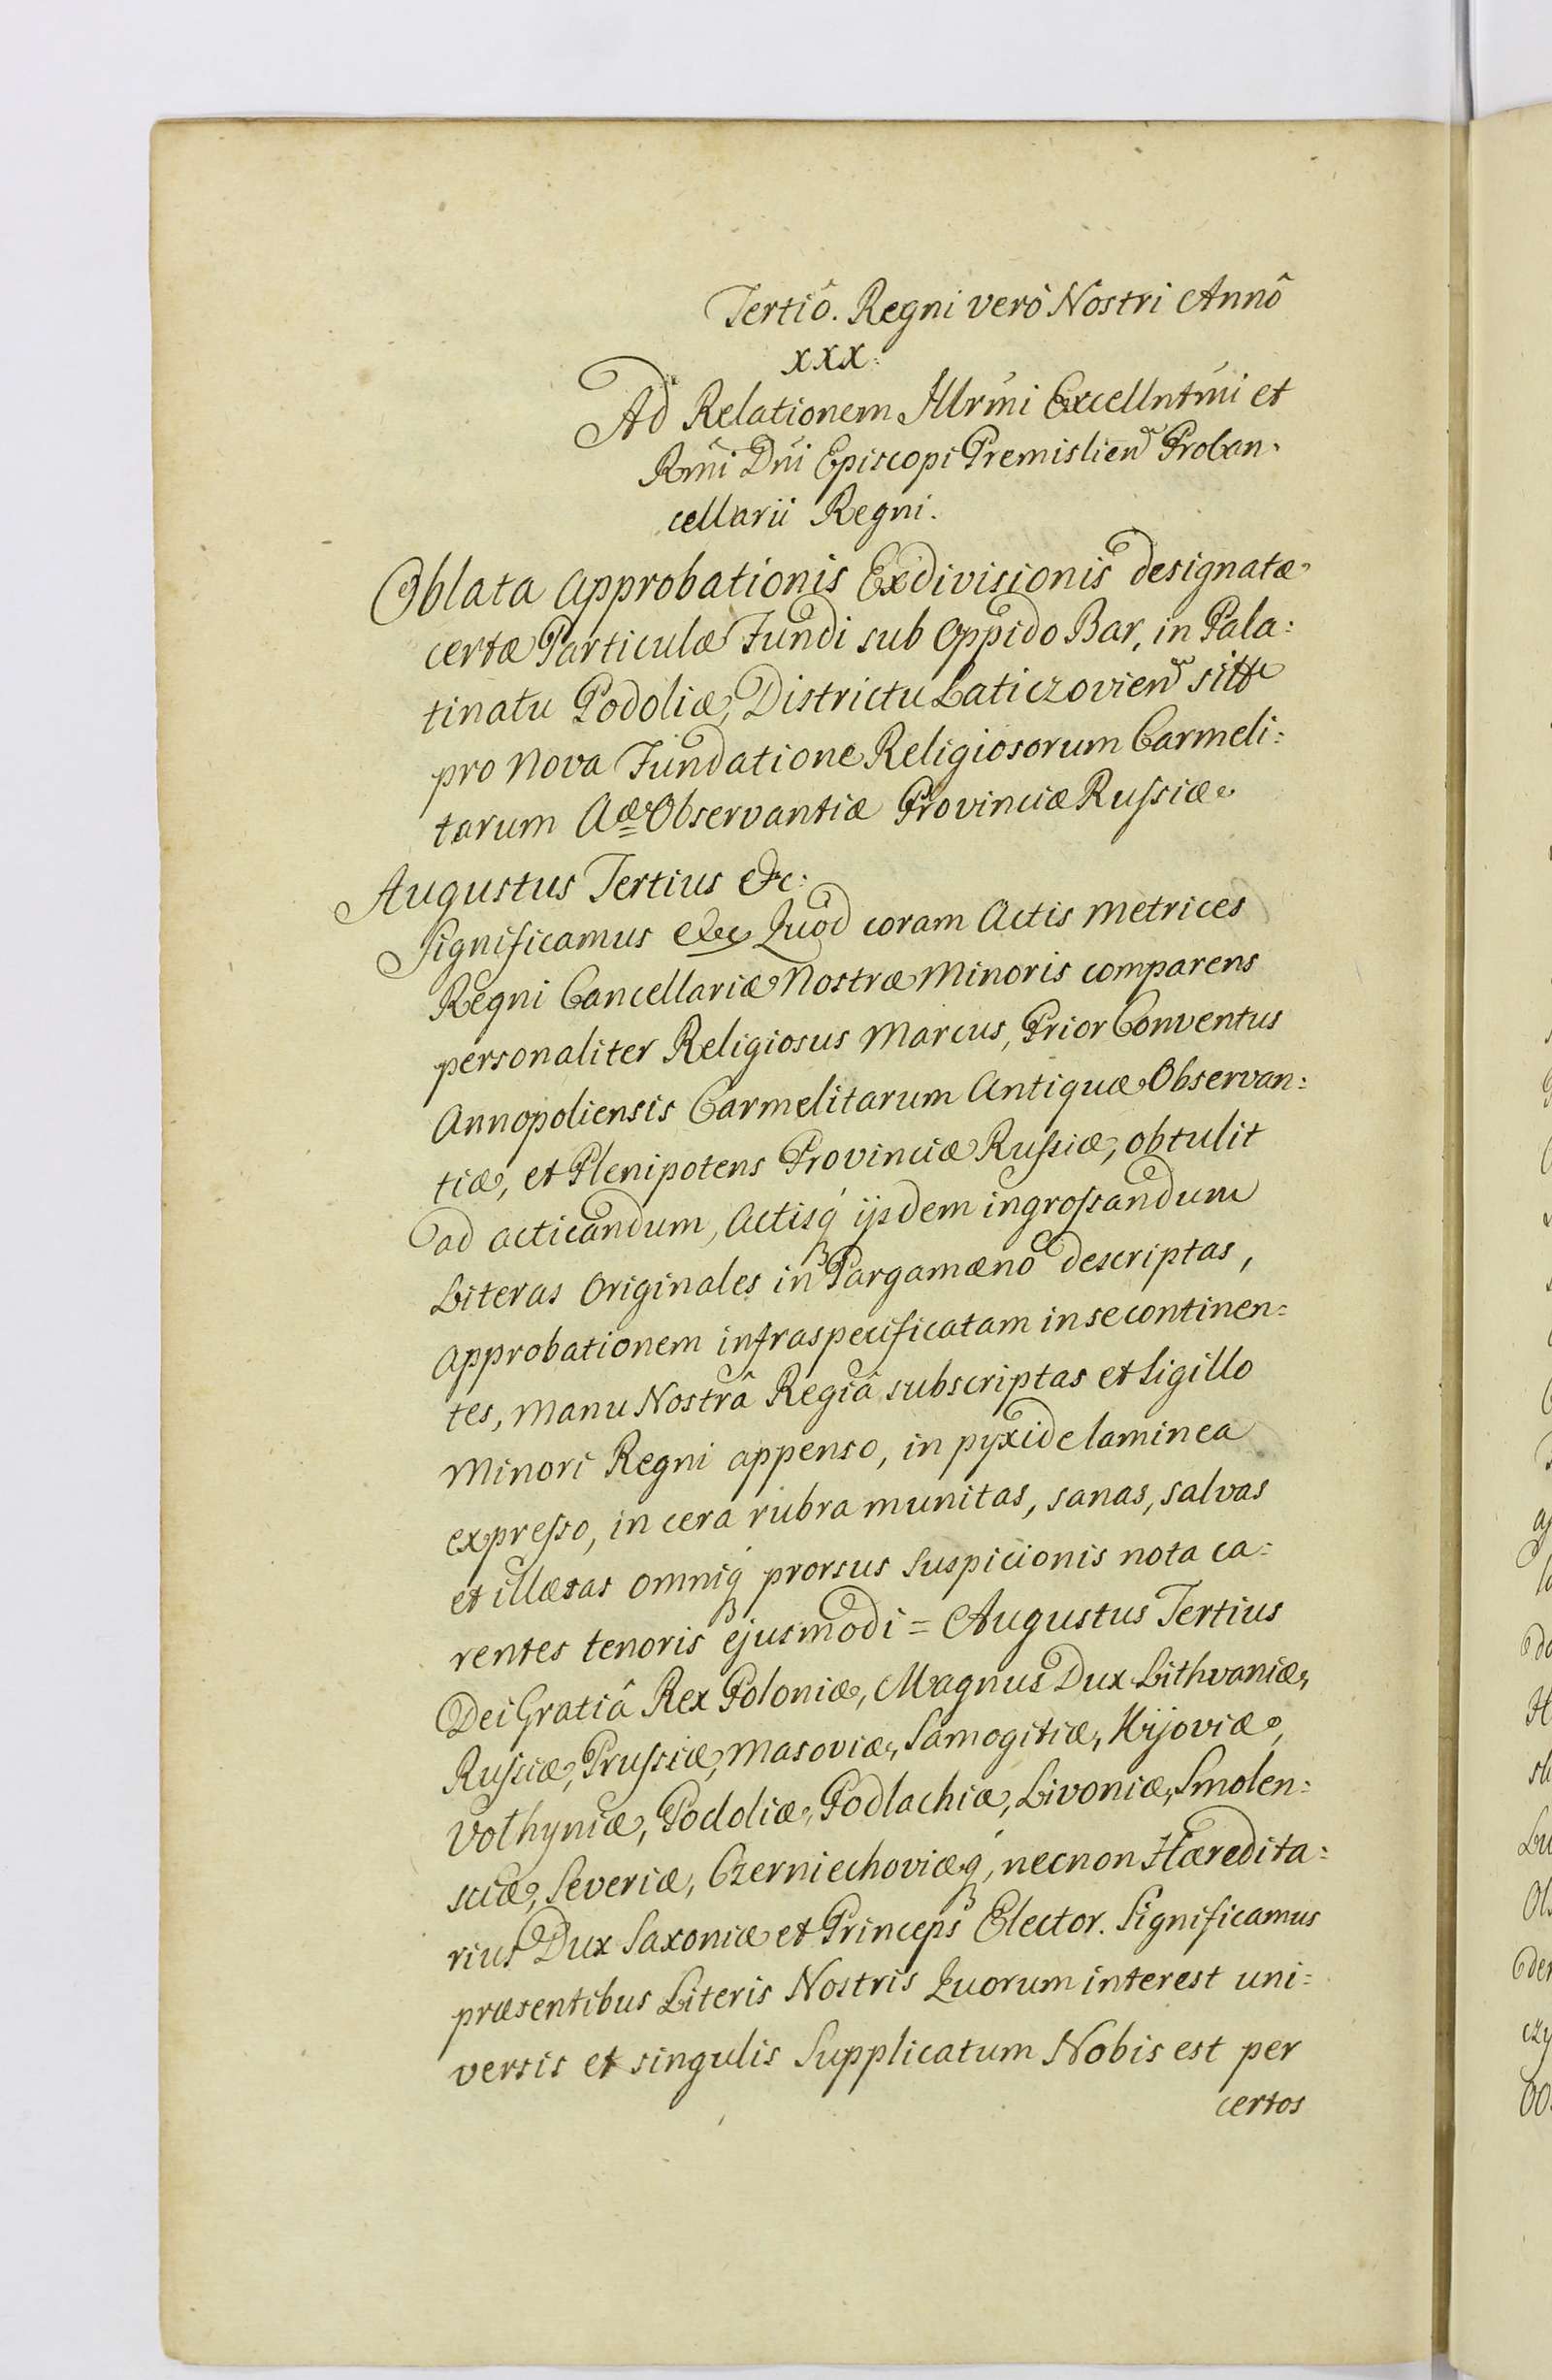 Tertiô. Regni verô Nostri Annô
XXX.
Ad Relationem Illrmi Excellntmi et
Rmi Dni Episcopi Premislien Procan:
cellarii Regni.
Oblata Approbationis Exdivisionis designatæ
certæ Particulæ Fundi sub Oppido Bar, in Pala:
tinatu Podoliæ, Districtu Laticzovien sittæ
pro Nova Fundatione Religiosorum Carmeli:
tarum Aæ Observantiæ Provinciæ Russiæ
Augustus Tertius etc:
Significamus etc Quod coram Actis Metrices
Regni Cancellariæ Nostræ Minoris comparens
personaliter Religiosus Marcus, Prior Conventus
Annopoliensis Carmelitarum Antiquæ Observan:
tiæ, et Plenipotens Provinciæ Russiæ, obtulit
ad acticandum, Actisq́ ijsdem ingrossandum
Literas Originales in Pargamæno descriptas,
Approbationem infraspecificatam in se continen=
tes, Manu Nostrâ Regiâ subscriptas et Sigillo
Minori Regni appenso, in pyxide laminea
expresso, in cera rubra munitas, sanas, salvas
et illæsas omniq́ prorsus suspicionis nota ca:
rentes tenoris ejusmodi = Augustus Tertius
Dei Gratiâ Rex Poloniæ, Magnus Dux Lithvaniæ,
Russiæ, Prussiæ, Masoviæ, Samogitiæ, Kijoviæ,
Volhyniæ, Podoliæ, Podlachiæ, Livoniæ, Smolen:
sciæ, Severiæ, Czerniechoviæq́, necnon Hæredita:
rius Dux Saxoniæ et Princeps Elector. Significamus
præsentibus Literis Nostris Quorum interest uni=
versis et singulis Supplicatum Nobis est per
certos